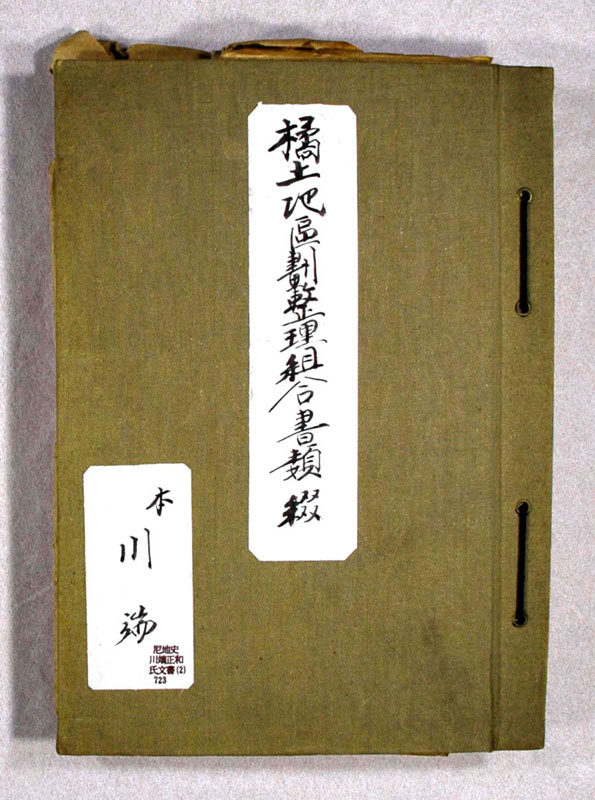 橘土地區劃整理組合書類綴
本
川端
尼地史
川端正和
氏文書(2)
723